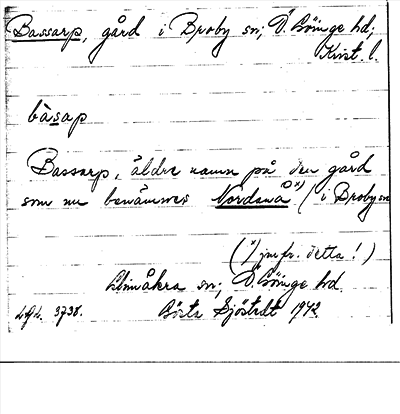 Bassarp, gård i Broby sn; Ö. Göinge hd;
Krist. l.
bàsap
Bassarp, äldre namn på den gård
som nu benämnes Nordanå *) (i Broby sn
(*) jmfr. detta!)
Glimåkra sn; Ö. Göinge hd.
LGL. 3738. Gösta Sjöstedt 1942